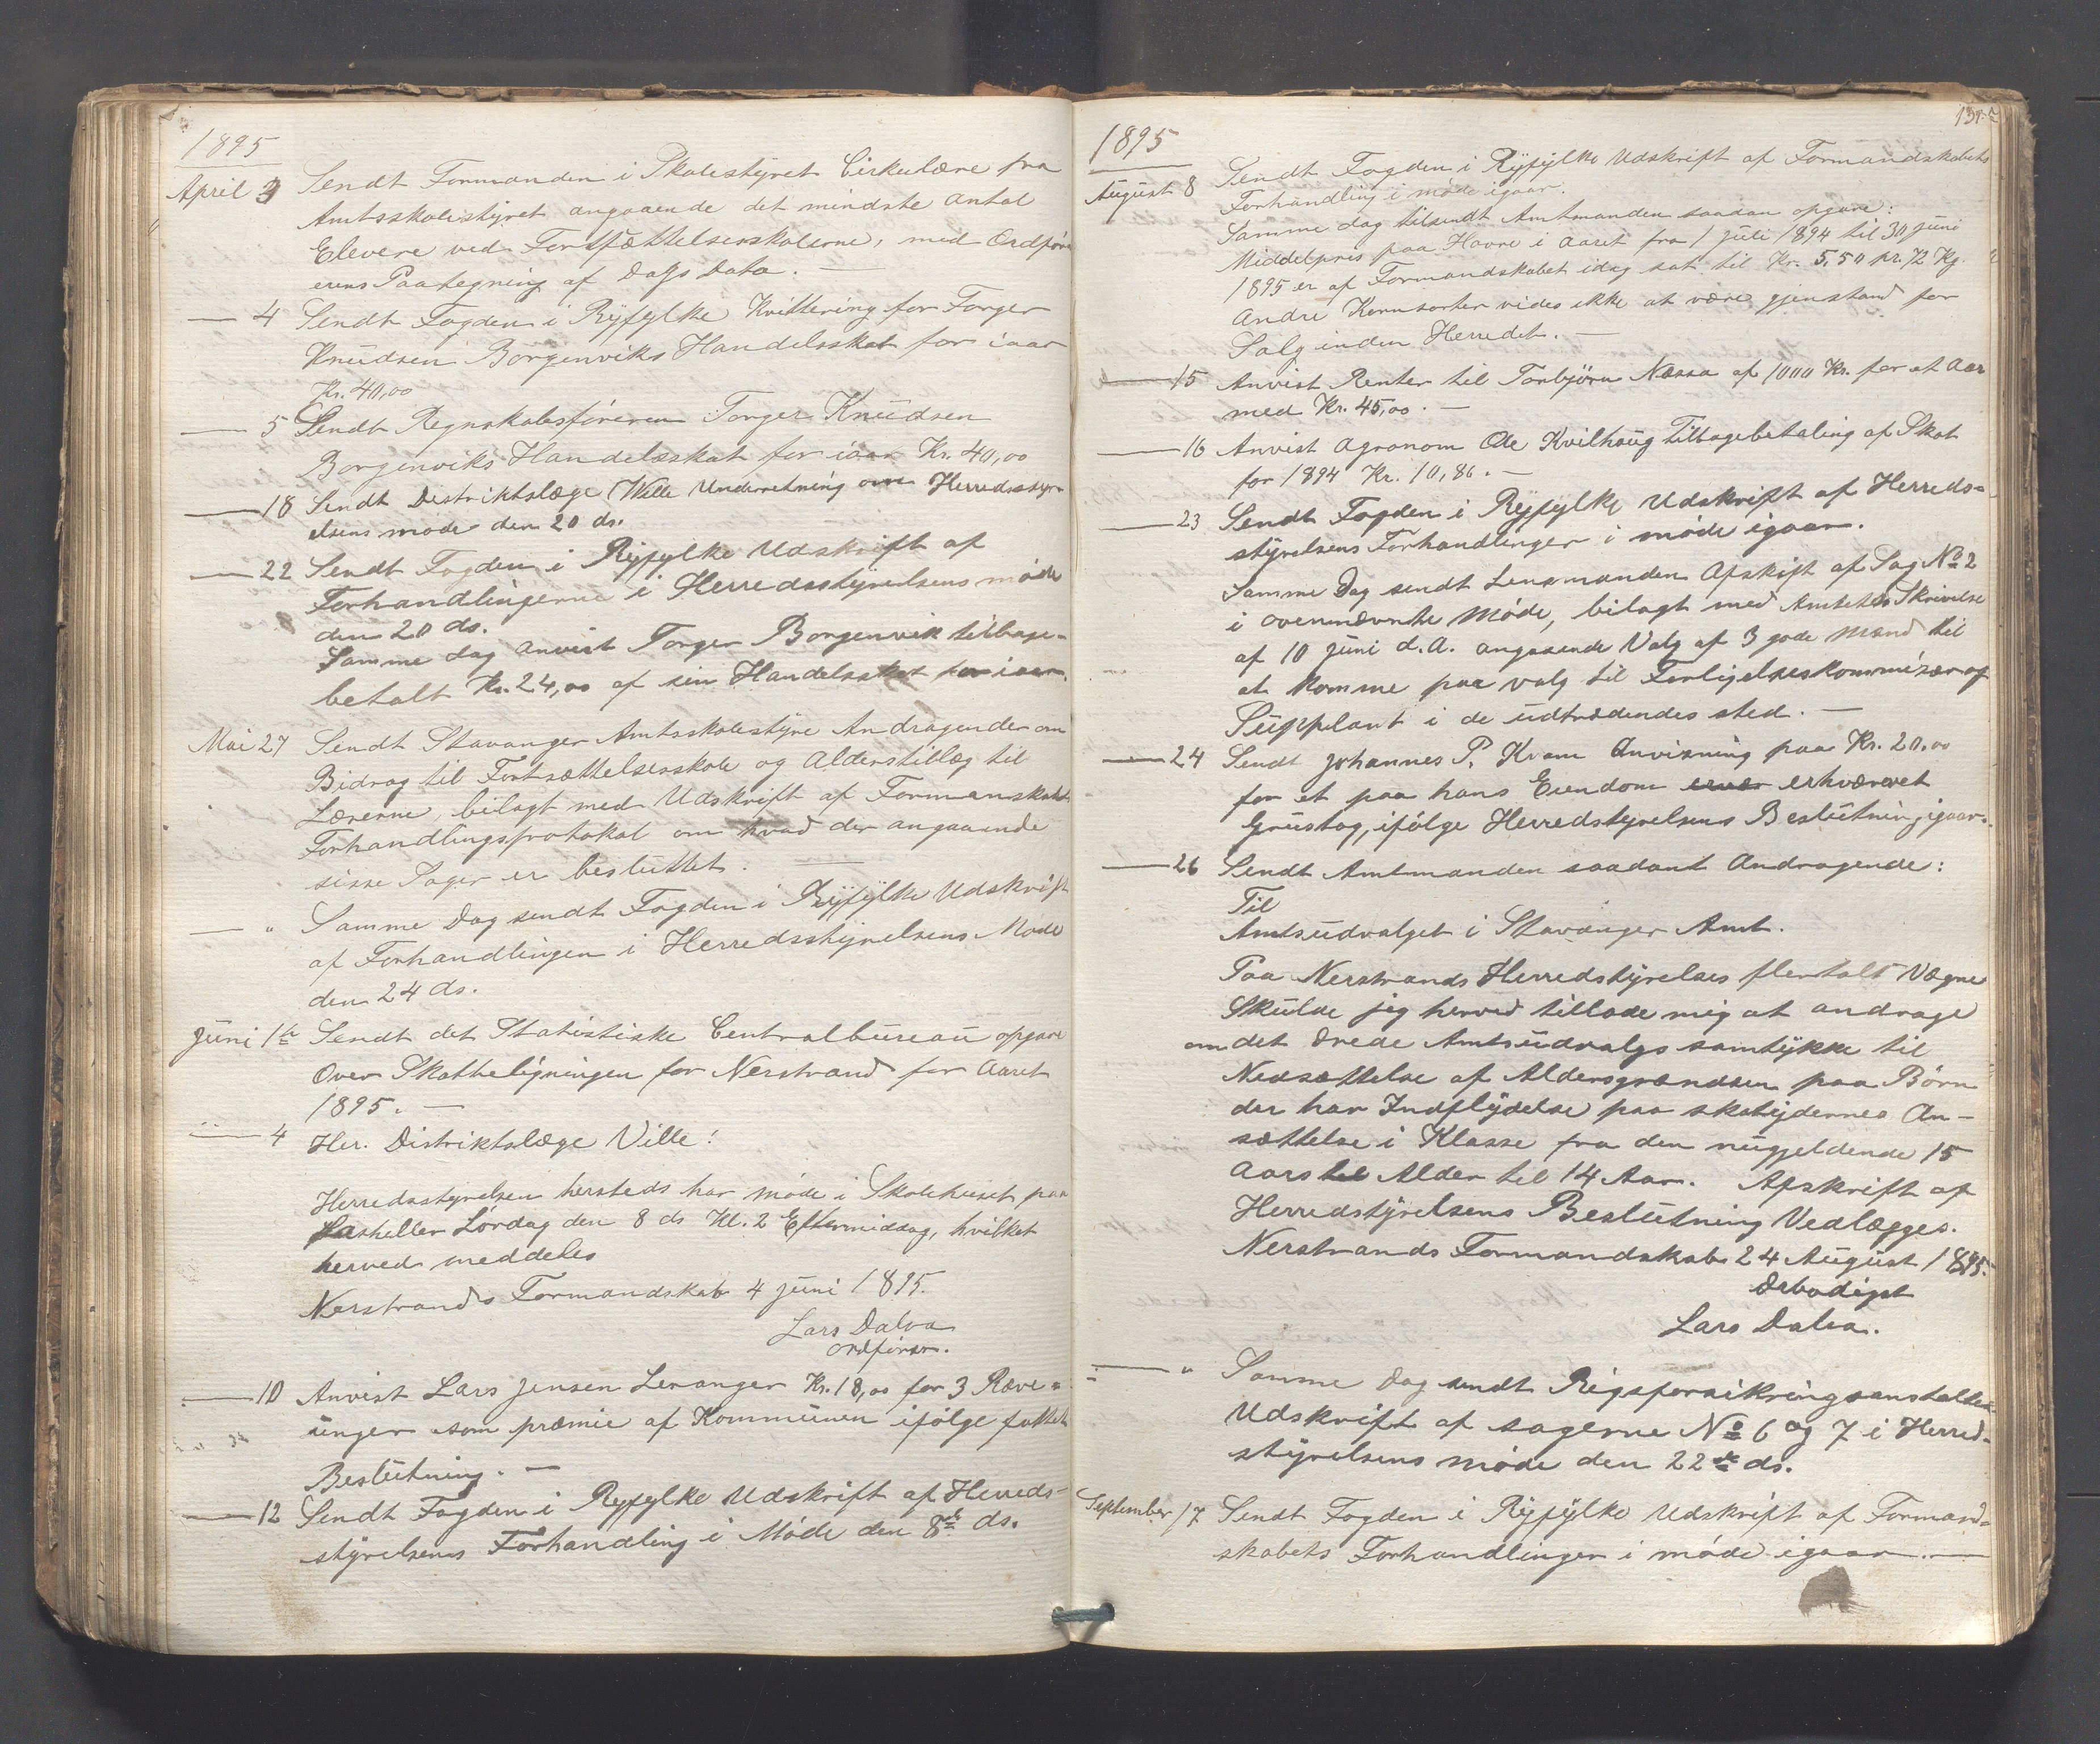 1895
April 3 Sendt Formanden i Skolestyret Cirkulære fra
Amtsskolestyret angaaende det mindste antal
Elevere ved Fortsættelsesskolerne, med Ordför
erens Paategning af Dags Dato. —
— 4 Sendt Fogden i Ryfylke Kvittering for Torger
Knudsen Borgenviks Handelsskat for iaar
Kr. 40,00
— 5 Sendt Regnskabsföreren Torger Knudsen
Borgenviks Handelsskat for iaar Kr. 40,00
— 18 Sendt Distriktslæge Wille Underretning om Herredsstyr-
elsens mode den 20 ds.
— 22 Sendt Fogden i Ryfylke Udskrift af
Forhandlingerne i Herredsstyrelsens möde
den 20 ds.
Samme dag anvist Torger Borgenvik tilbage-
betalt Kr. 24,00 af sin Handelsskat for iaar.
Mai 27 Sendt Stavanger Amtsskolestyre Andragender om
Bidrag til Fortsættelsesskole og Alderstillæg til
Lærerne, bilagt med Udskrift af Formanskabets
Forhandlingsprotokol om hvad der angaaende
disse Sager er besluttet. —
— " Samme Dag sendt Fogden i Ryfylke Udskrift
af Forhandlingen i Herredsstyrelsens Mode
den 24 ds.
Juni 1ste Sendt det Statistiske Centralbureau opgave
Over Skatteligningen for Nerstrand for Aaret
1895. —
— 4 Her. Distriktslæge Ville!
Herredsstyrelsen hersteds har möde i Skolehuset paa
Lørdag den 8 ds Kl. 2 Eftermiddag, hvilket
herved meddeles
Nerstrands Formandskab 4 Juni 1895.
Lars Dalva
ordförer.
— 10 Anvist Lars Jensen Leranger Kr. 18,00 for 3 Ræve-
unger som præmie af Kommunen ifölge fattet
Beslutning. —
— 12 Sendt Fogden i Ryfylke Udskrift af Herreds-
styrelsens Forhandling i Möde den 8de ds.
1895
August 8 Sendt Fogden i Ryfylke Udskrift af Formandskabets
Forhandling i möde igaar.
Samme dag tilsendt Amtmanden saadan opgave:
Middelpris paa Havre i aaret fra 1 Juli 1894 til 30 Juni
1895 er af Formandskabet idag sat til Kr. 5,50 pr. 72 Kg.
Andre Kornsorter vides ikke at være gjenstand for
Salg inden Herredet. —
— 15 Anvist Renter til Torbjörn Næssa af 1000 Kr. for et Aar
med Kr. 45,00. —
— 16 Anvist Agronom Ole Kvilhaug Tilbagebetaling af Skat
for 1894 Kr. 10,86. —
— 23 Sendt Fogden i Ryfylke Udskrift af Herreds-
styrelsens Forhandlinger i möde igaar.
Samme Dag sendt Lensmanden Afskift af Sag No 2
i ovennævnte Möde, bilagt med Amtets Skrivelse
af 10 Juni d.A. angaaende Valg af 3 gode Mænd til
at komme paa valg til Forligelseskommisær og
Supplant i de udtrædendes sted. —
— 24 Sendt Johannes P. Kvam Anvisning paa Kr. 20,00
for et paa hans Eiendom erhværvet
Grustag, ifölge Herredstyrelsens Beslutning igaar.
— 26 Sendt Amtmanden saadant Andragende:
Til
Amtsudvalget i Stavanger Amt.
Paa Nerstrands Herredstyrelses flertals Vægne
Skulde jeg herved tillade mig at andrage
om det Ærede Amtsudvalgs samtykke til
Nedsættelse af Aldersgrændsen paa Börn
der har Indflydelse paa skatydernes An-
sættelse i Klasse fra den nugjeldende 15
Aars Alder til 14 Aar. Afskrift af
Herredstyrelsens Beslutning Vedlægges.
Nerstrands Formandskab 24 August 1895.
Ærbødigst
Lars Dalva.
— " Samme Dag sendt Rigsforsikringsanstalten
Udskrift af sagerne No 6 og 7 i Herred-
styrelsens möde den 22de ds.
September 17 Sendt Fogden i Ryfylke Udskrift af Formand-
skabets Forhandlinger i möde igaar. —